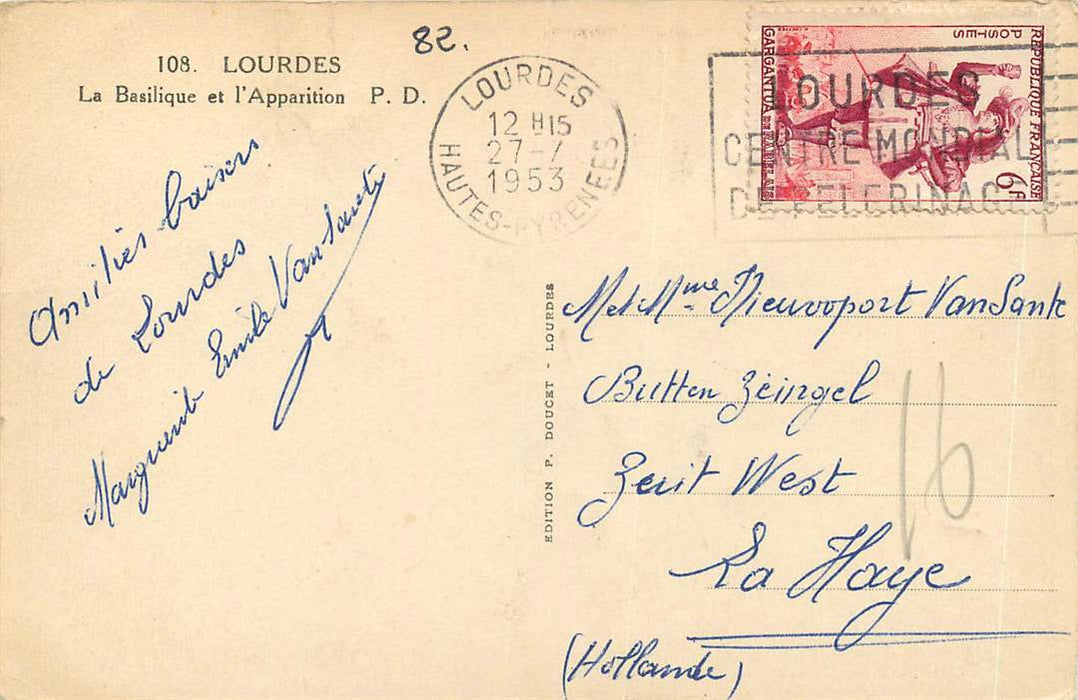 82.
108. LOURDES
La Basilique et l'Apparition P. D.
LOURDES
12 H 15
27-7
1953
HAUTES-PYRENEES
REPUBLIQUE FRANÇAISE
POSTES
GARGANTUA DE RABELAIS
6F
LOURDES
CENTRE MONDIAL
DE PELERINAGE
Amitiés baisers
de Lourdes
Marguerite Emile VanSante
EDITION P. DOUCET - LOURDES
M et Mme Nieuvooport VanSante
Butten Zeingel
Zerit West
La Haye
(Hollande)
16